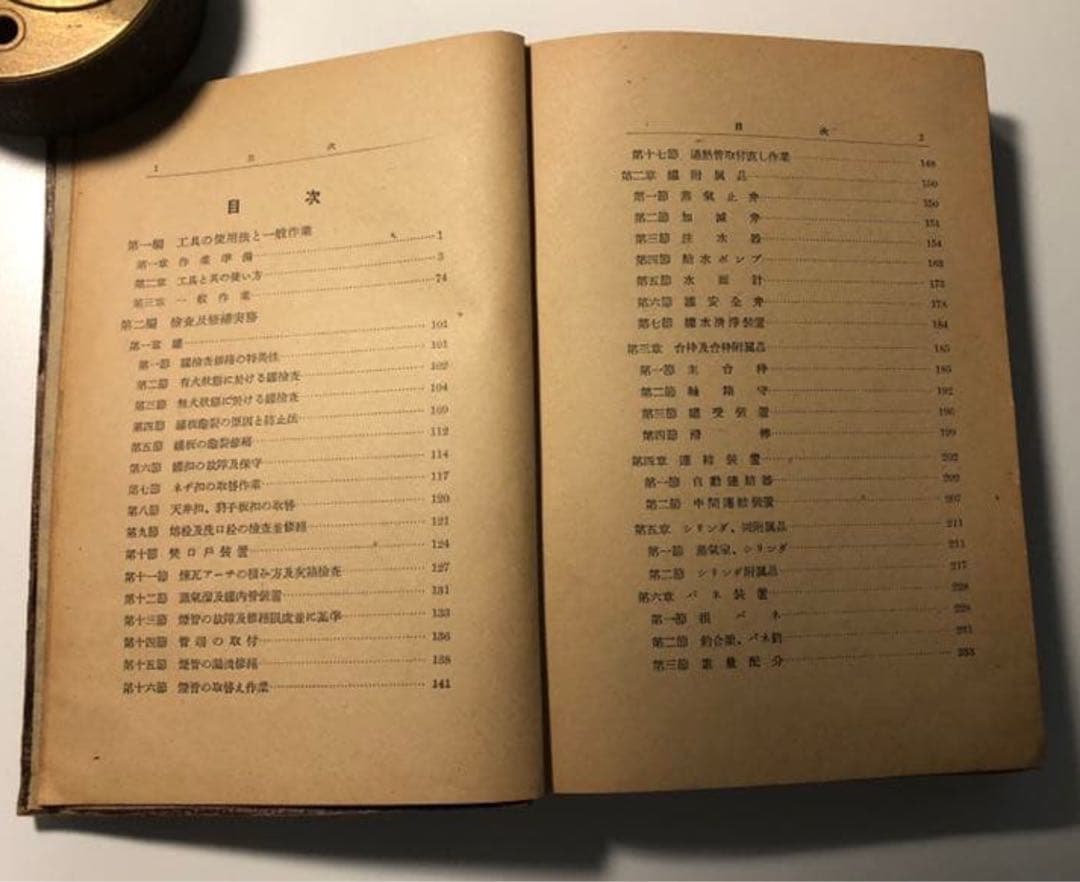 1 目 次
目 次
第一編 工具の使用法と一般作業 1
第一章 作業準備 3
第二章 工具と其の使い方 74
第三章 一般作業
第二編 檢査及修繕実務 101
第一章 罐 101
第一節 罐檢査修繕の特異性 102
第二節 有火状態に於ける罐檢査 104
第三節 無火状態に於ける罐檢査 109
第四節 罐板龜裂の原因と防止法 112
第五節 罐板の龜裂修繕 114
第六節 罐扣の故障及保守 117
第七節 ネヂ扣の取替作業 120
第八節 天井扣、豹子板扣の取替 121
第九節 熔栓及洗口栓の檢査並修繕 124
第十節 焚口戸装置 127
第十一節 煉瓦アーチの積み方及灰箱檢査 131
第十二節 蒸氣溜及罐内管装置 133
第十三節 煙管の故障及修繕限度並に基準 136
第十四節 管端の取付 138
第十五節 煙管の漏洩修繕 141
第十六節 煙管の取替え作業
目 次 2
第十七節 過熱管取付直し作業 148
第二章 罐附属品 150
第一節 蒸氣止弁 150
第二節 加減弁 151
第三節 注水器 154
第四節 給水ポンプ 163
第五節 水面計 173
第六節 罐安全弁 178
第七節 罐水清浄装置 184
第三章 台枠及台枠附属品 185
第一節 主台枠 185
第二節 軸箱守 192
第三節 罐受装置 196
第四節 滑 199
第四章 連結装置 202
第一節 自動連結器 202
第二節 中間連結装置 207
第五章 シリンダ、同附属品 211
第一節 蒸氣室、シリンダ 211
第二節 シリンダ附属品 217
第六章 バネ装置 228
第一節 担バネ 228
第二節 釣合梁、バネ釣 231
第三節 重量配分 233